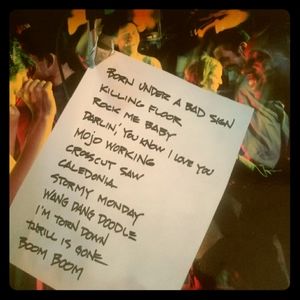 BORN UNDER A BAD SIGN
KILLING FLOOR
ROCK ME BABY
DARLIN', YOU KNOW I LOVE YOU
MOJO WORKING
CROSSCUT SAW
CALEDONIA
STORMY MONDAY
WANG DANG DOODLE
I'M TORN DOWN
THRILL IS GONE
BOOM BOOM